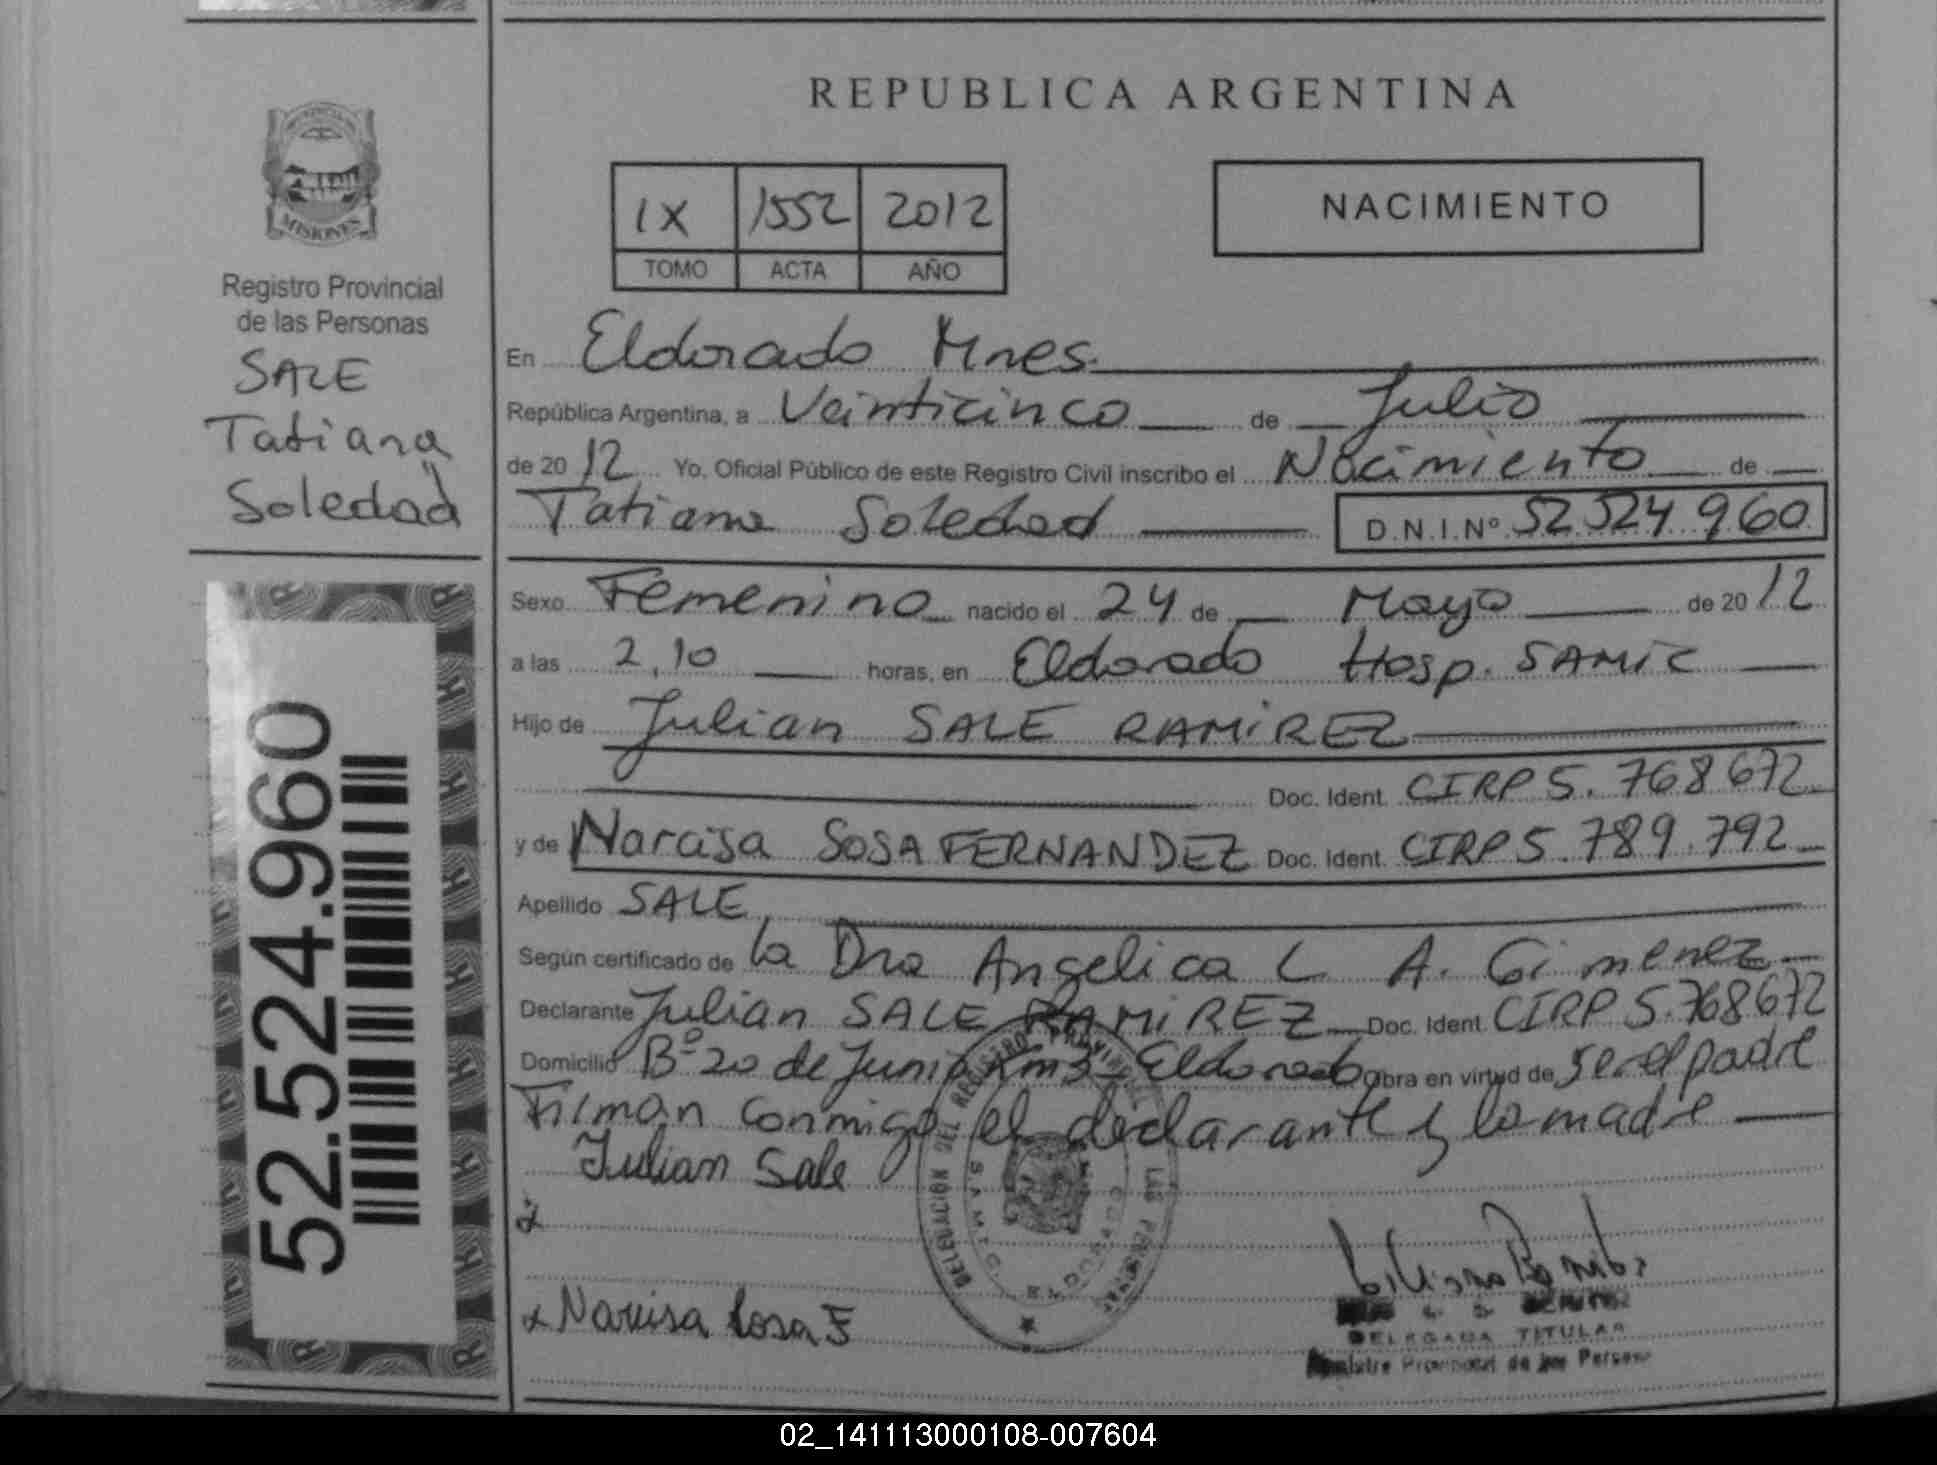 REPUBLICA ARGENTINA
MISIONES
Registro Provincial
de las Personas
SALE
Tatiana
Soledad
52.524.960
IX 1552 2012
TOMO ACTA AÑO
NACIMIENTO
En Eldorado Mnes.
República Argentina, a Veinticinco de Julio
de 20 12 Yo, Oficial Público de este Registro Civil inscribo el Nacimiento de
Tatiana Soledad D.N.I.Nº 52 524 960
Sexo Femenino nacido el 24 de Mayo de 20 12
a las 2,10 horas, en Eldorado Hosp. SAMIC
Hijo de Julian SALE RAMIREZ
Doc. Ident. CIRP 5.768672
y de Narcisa SOSA FERNANDEZ Doc. Ident. CIRP 5.789.792
Apellido SALE
Según certificado de la Dra Angelica L. A. Gimenez
Declarante Julian SALE RAMIREZ Doc. Ident CIRP 5.768672
Domicilio Bº 20 de Junio Km3 - Eldorado Obra en virtud de ser el padre
Firman conmigo el declarante y la madre
Julian Sale
x Narcisa Sosa F
DELEGACIÓN DEL REGISTRO PROVINCIAL LAS PERSONAS
S.A.M.I.C. ELDORADO
DELEGADA TITULAR
Provincial de las Personas
02_141113000108-007604